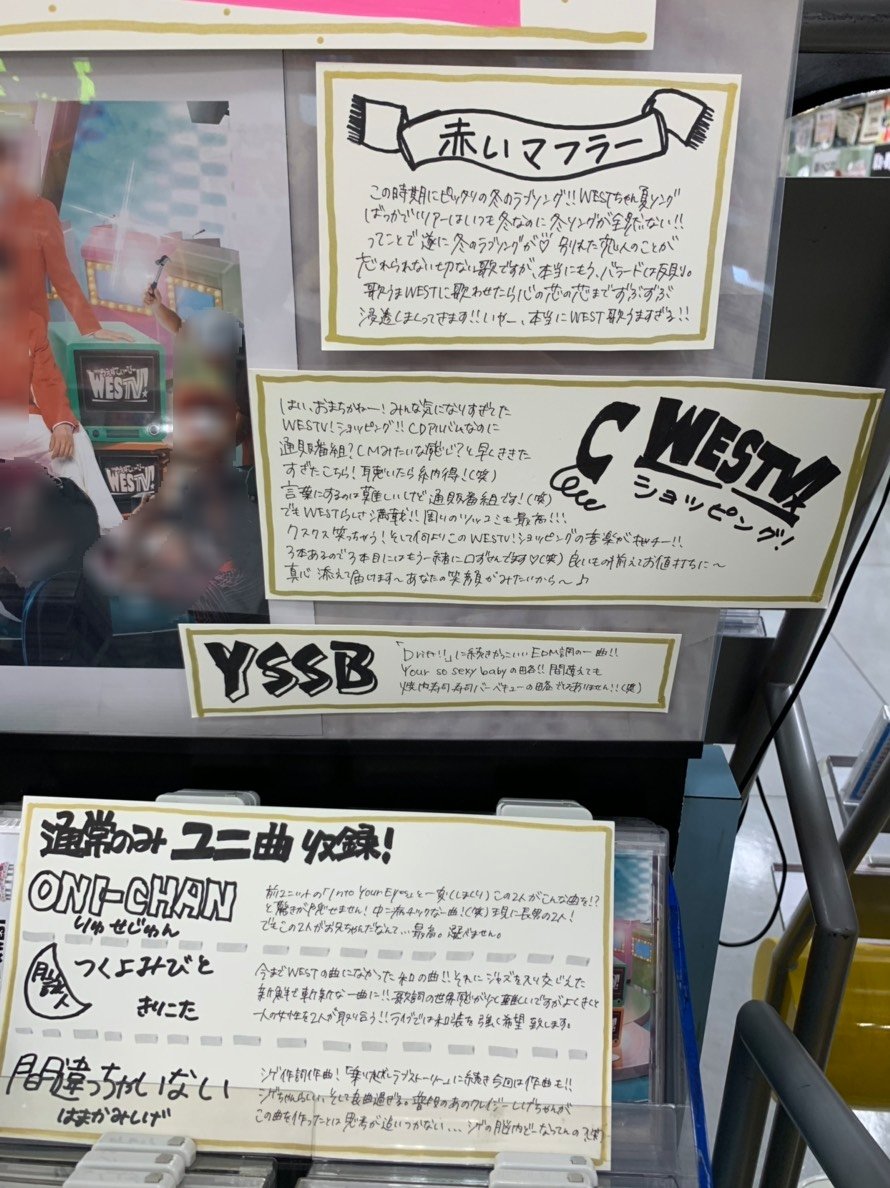 赤いマフラー
この時期にピッタリの冬のラブソング!! WESTちゃん夏ソング
ばっかでツアーはいつも冬なのに冬ソングが全然ない!!
ってことで遂に冬のラブソングが♡ 別れた恋人のことが
忘れられない切ない歌ですが、本当にもう、バラードは反則。
歌うまWESTに歌わせたら心の芯の芯までずぶずぶ
浸透しまくってきます!! いやー、本当にWEST歌うますぎる!!
WESTV!
WESTV!
C WESTV!
ショッピング!
はい、おまちかねー! みんな気になりすぎてた
WESTV!ショッピング!! CDアルバムなのに
通販番組? CMみたいな感じ? と早くききた
すぎたこちら! 聴いたら納得!(笑)
言葉にするのは難しいけど通販番組です!(笑)
でもWESTらしさ満載!! 周りのツッコミも最高!!!
クスクス笑っちゃう! そして何よりこのWESTV!ショッピングの音楽がキャッチー!!
3本あるので3本目にはもう一緒に口ずさんでます♡(笑) 良いもの揃えてお値打ちに〜
真心 添えて届けます〜あなたの笑顔がみたいから〜♪
YSSB
「Drift!!」に続きかっこいいEDM調の一曲!!
Your so sexy babyの略!! 間違えても
焼肉寿司寿司バーベキューの略でもありません!!(笑)
通常のみ ユニ曲 収録!
ONI-CHAN
りゅせじゅん
前ユニットの「Into Your Eyes」と一変(しまくり) この2人がこんな曲を!?
と驚きが隠せません! 中二病チックな一曲!(笑) 現に長男の2人!
でもこの2人がお兄ちゃんだなんて...最高。選べません。
月詠人
つくよみびと
きりこた
今までWESTの曲になかった和の曲!! それにジャズを入り交じえた
新鮮で斬新な一曲に!! 歌詞の世界感が少し難しいですがよくきくと
一人の女性を2人が取り合う!! ライブでは和装を強く希望致します。
間違っちゃいない
はまかみしげ
シゲ作詞作曲! 「乗り越しラブストーリー」に続き今回は作曲も!!
シゲちゃんらしい、そして良曲過ぎる。普段のあのクレイジーしげちゃんが
この曲を作ったとは思考が追いつかない... シゲの脳内どーなってんの?(笑)